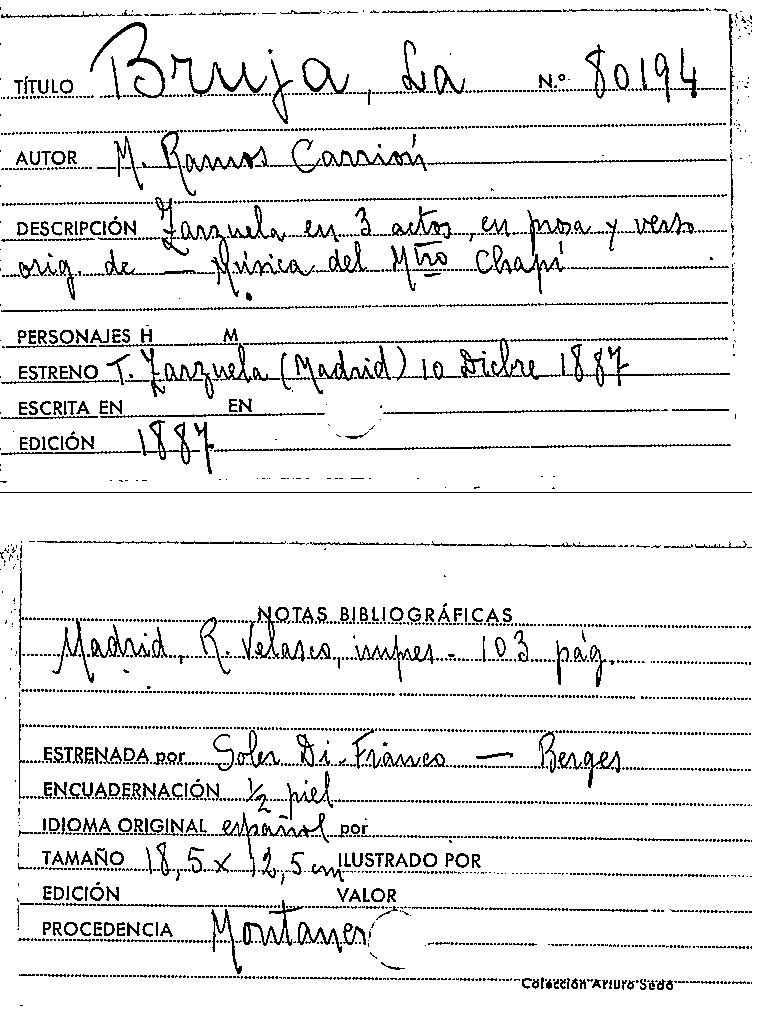 TÍTULO Bruja, La N.º 80194
AUTOR M. Ramos Carrión
DESCRIPCIÓN Zarzuela en 3 actos, en prosa y verso
orig. de — Música del Mtro Chapí
PERSONAJES H M
ESTRENO T. Zarzuela (Madrid) 10 Dicbre 1887
ESCRITA EN EN
EDICIÓN 1887
NOTAS BIBLIOGRÁFICAS
Madrid, R. Velasco, impres - 103 pág.
ESTRENADA por Soler Di-Franco — Berges
ENCUADERNACIÓN ½ piel
IDIOMA ORIGINAL español por
TAMAÑO 18,5 x 12,5 cm ILUSTRADO POR
EDICIÓN VALOR
PROCEDENCIA Montaner
Colección Arturo Sedó